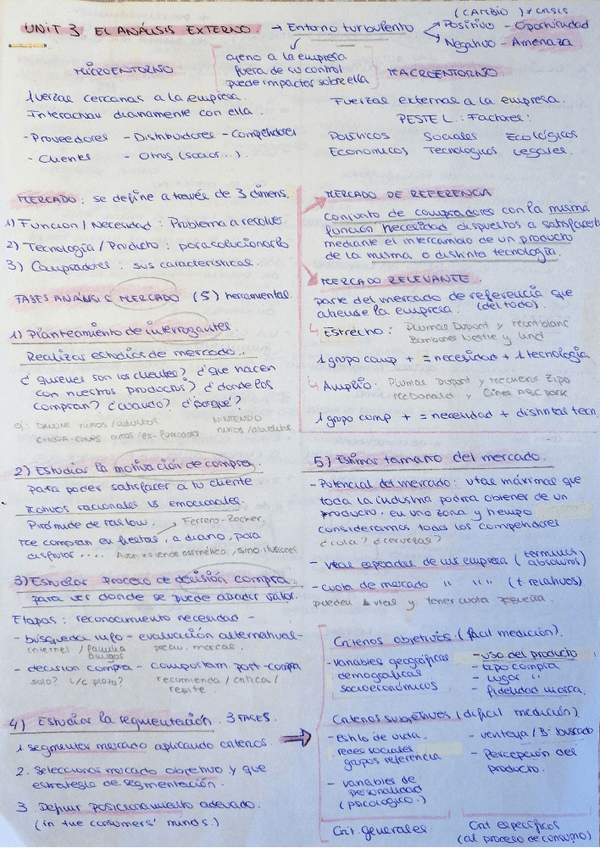 (CAMBIO) ≠ CRISIS
UNIT 3. EL ANÁLISIS EXTERNO. → Entorno turbulento
Positivo - Oportunidad
Negativo - Amenaza
ajeno a la empresa
fuera de su control
puede impactar sobre ella
MICROENTORNO
Fuerzas cercanas a la empresa.
Interactúan diariamente con ella.
- Proveedores - Distribuidores - Competidores
- Clientes - Otros (socios...).
MACROENTORNO
Fuerzas externas a la empresa.
PESTEL: Factores:
Políticos Sociales Ecológicos
Económicos Tecnológicos Legales.
MERCADO: se define a través de 3 dimens.
1) Función / Necesidad: Problema a resolver
2) Tecnología / Producto: para solucionarlo
3) Compradores: sus características.
FASES ANÁLISIS MERCADO (5) herramientas
1) Planteamiento de interrogantes
Realizar estudios de mercado.
¿quienes son los clientes? ¿que hacen
con nuestros productos? ¿donde los
compran? ¿cuando? ¿porqué?
ej: DANONE niños/adultos
CHUPA-CHUPS niños/ex-fumadores
NINTENDO
niños/abuelitos
MERCADO DE REFERENCIA
Conjunto de compradores con la misma
función necesidad dispuestos a satisfacerla
mediante el intercambio de un producto
de la misma o distinta tecnología.
MERCADO RELEVANTE.
parte del mercado de referencia que
atiende la empresa. (del todo).
↳ Estrecho: Plumas Dupont y montblanc
Bombones Nestle y Lind
1 grupo comp + = necesidad + 1 tecnología
↳ Amplio: Plumas Dupont y mecheros Zipo
McDonald y
1 grupo comp + = necesidad + distintas tecn
2) Estudiar la motivación de compra.
para poder satisfacer a tu cliente.
Motivos racionales vs emocionales.
Pirámide de maslow. → Ferrero-Rocher.
me compran en fiestas, a diario, para
disfrutar .... Avon no vende cosmética, sino ilusiones
3) Estudiar proceso de decisión compra.
para ver donde se puede añadir valor.
Etapas: reconocimiento necesidad -
- búsqueda info - evaluación alternativas -
internet / familia
amigos
precio, marcas.
- decision compra - comportam post-compra
solo? t/c plazo?
recomienda / critica /
repite
4) Estudiar la segmentación. 3 FASES.
1 segmentar mercado aplicando criterios. →
2. Seleccionar mercado objetivo y que
estrategia de segmentación.
3 Definir posicionamiento adecuado.
(in the consumers' minds.)
5) Estimar tamaño del mercado.
- Potencial del mercado: vtas máximas que
toda la industria podría obtener de un
producto, en una zona y tiempo
consideramos todos los competidores
¿cola? ¿cervezas?
- vtas esperadas de mi empresa (términos
absolutos)
- cuota de mercado " " " (t relativos)
pueden ↓ vtas y tener cuota pequeña
Criterios objetivos (fácil medición).
- variables geográficas
demográficas
socioeconómicos
- uso del producto
- tipo compra
- lugar "
- fidelidad marca.
Criterios subjetivos (difícil medición)
- Estilo de vida.
redes sociales
grupos referencia
- variables de
personalidad
(psicológico.)
- ventaja / Bº buscado
- Percepción del
producto.
Crit. generales
Crit específicos
(al proceso de consumo)